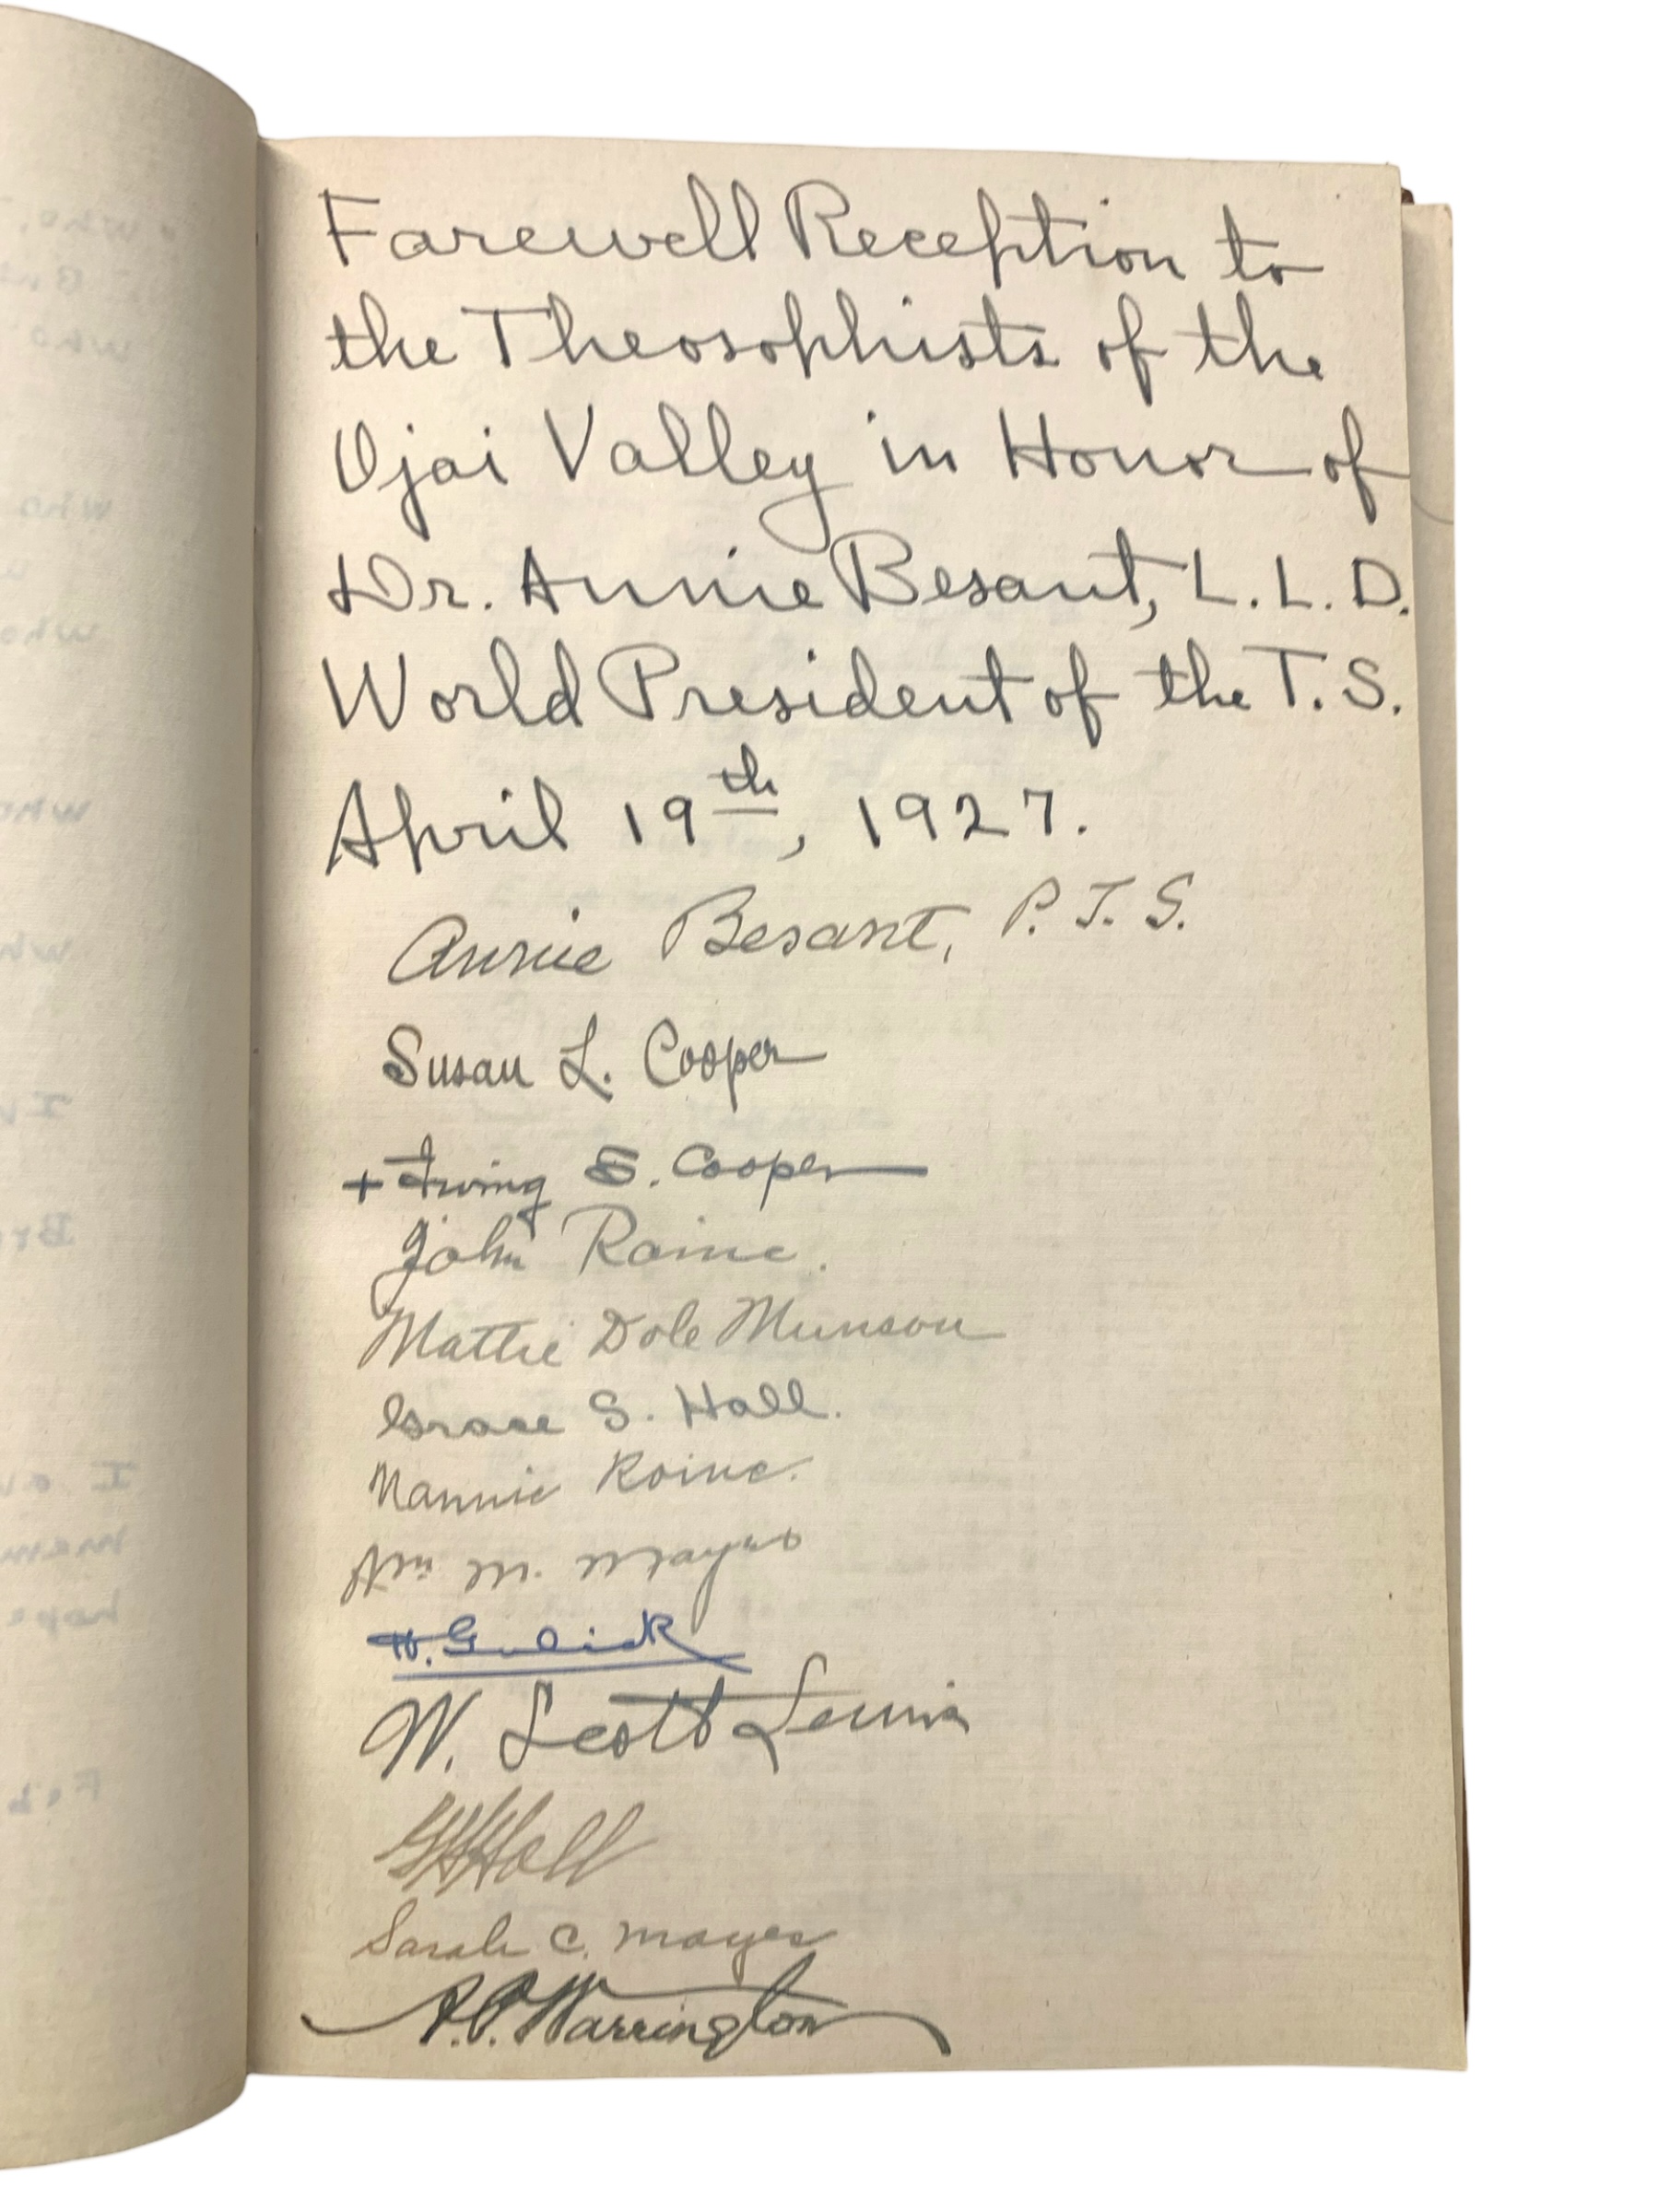 Farewell Reception to
the Theosophists of the
Ojai Valley in Honor of
Dr. Annie Besant, L.L.D.
World President of the T.S.
April 19th, 1927.
Annie Besant, P.T.S.
Susan L. Cooper
+ Irving S. Cooper
John Roine.
Mattie Dole Munson
Grace S. Hall.
Nannie Roine.
Wm M. Mayes
H. Gulick
W. Scott Lewis
Hall
Sarah C. Mayes
A.P. Warrington